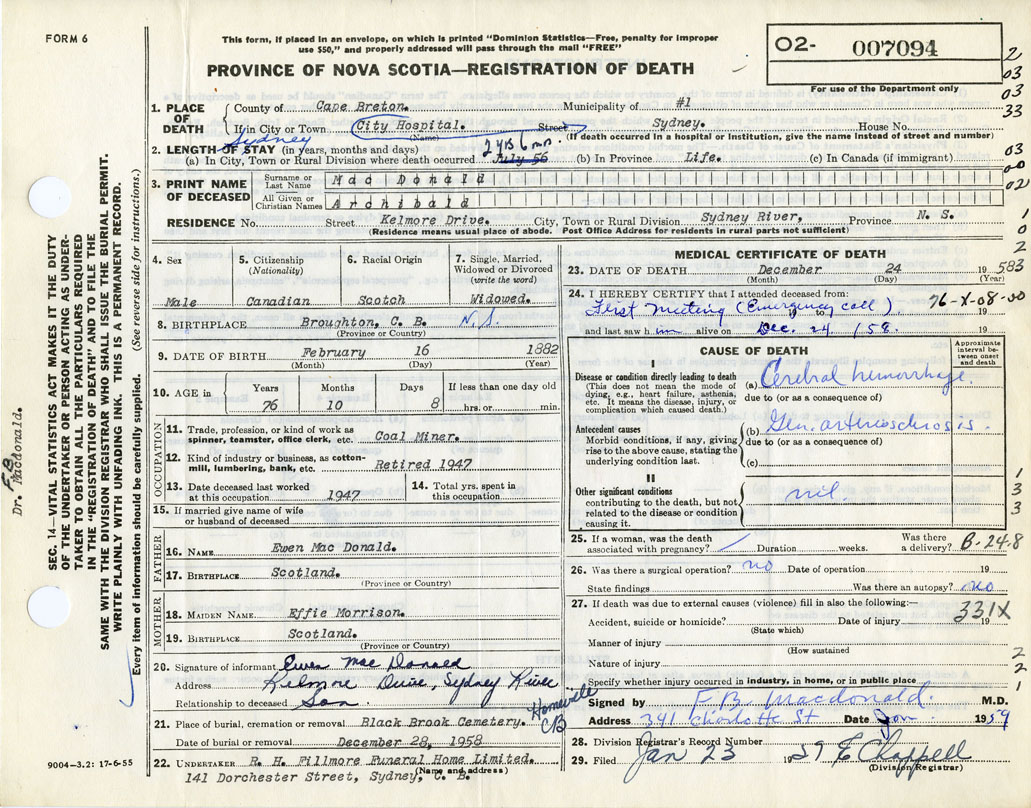 FORM 6
This form, if placed in an envelope, on which is printed "Dominion Statistics—Free, penalty for improper
use $50," and properly addressed will pass through the mail "FREE"
PROVINCE OF NOVA SCOTIA—REGISTRATION OF DEATH
02- 007094
For use of the Department only
2
03
03
33
03
00
02
1
0
2
1. PLACE OF DEATH
County of Cape Breton. Municipality of #1
If in City or Town City Hospital. Street Sydney. House No.
(Name) (If death occurred in a hospital or institution, give the name instead of street and number)
Sydney
2. LENGTH OF STAY (in years, months and days) 2 yrs 6 mn.
(a) In City, Town or Rural Division where death occurred July 56 (b) In Province Life. (c) In Canada (if immigrant)
3. PRINT NAME OF DECEASED
Surname or Last Name Mac Donald
All Given or Christian Names Archibald
RESIDENCE No. Street Kelmore Drive. City, Town or Rural Division Sydney River, Province N. S.
(Residence means usual place of abode. Post Office Address for residents in rural parts not sufficient)
4. Sex
Male
5. Citizenship
(Nationality)
Canadian
6. Racial Origin
Scotch
7. Single, Married,
Widowed or Divorced
(write the word)
Widowed.
8. BIRTHPLACE Broughton, C. B. N.S.
(Province or Country)
9. DATE OF BIRTH February 16 1882
(Month) (Day) (Year)
10. AGE in Years Months Days If less than one day old
76 10 8 hrs. or min.
OCCUPATION
11. Trade, profession, or kind of work as
spinner, teamster, office clerk, etc. Coal Miner.
12. Kind of industry or business, as cotton-
mill, lumbering, bank, etc. Retired 1947
13. Date deceased last worked
at this occupation 1947
14. Total yrs. spent in
this occupation
15. If married give name of wife
or husband of deceased
FATHER
16. NAME Ewen Mac Donald.
17. BIRTHPLACE Scotland.
(Province or Country)
MOTHER
18. MAIDEN NAME Effie Morrison.
19. BIRTHPLACE Scotland.
(Province or Country)
20. Signature of informant Ewen Mac Donald
Address Kilmore Drive, Sydney River
Relationship to deceased Son
21. Place of burial, cremation or removal Black Brook Cemetery. Homeville CB
Date of burial or removal December 28, 1958
22. UNDERTAKER R. H. Fillmore Funeral Home Limited.
(Name and address)
141 Dorchester Street, Sydney, C. B.
9004-3.2: 17-6-55
MEDICAL CERTIFICATE OF DEATH
23. DATE OF DEATH December 24 19 583
(Month) (Day) (Year)
24. I HEREBY CERTIFY that I attended deceased from:
First Meeting (Emergency call) 19 to 19
76-X-08-00
and last saw him alive on Dec. 24 158. 19
CAUSE OF DEATH
Approximate
interval be-
tween onset
and death
I
Disease or condition directly leading to death
(This does not mean the mode of
dying, e.g., heart failure, asthenia,
etc. It means the disease, injury, or
complication which caused death.)
(a) Cerebral hemorrhage.
due to (or as a consequence of)
Antecedent causes
Morbid conditions, if any, giving
rise to the above cause, stating the
underlying condition last.
(b) Gen. arteriosclerosis.
due to (or as a consequence of)
(c)
II
Other significant conditions
contributing to the death, but not
related to the disease or condition
causing it.
nil.
1
3
3
25. If a woman, was the death
associated with pregnancy? Duration weeks. Was there
a delivery? B-24-8
26. Was there a surgical operation? no Date of operation 19
State findings Was there an autopsy? no
27. If death was due to external causes (violence) fill in also the following:—
Accident, suicide or homicide? Date of injury 19
331X
(State which)
Manner of injury
(How sustained
Nature of injury
Specify whether injury occurred in industry, in home, or in public place
2
2
1
Signed by F.B. Macdonald. M.D.
Address 341 Charlotte St Date Jan. 1959
28. Division Registrar's Record Number
29. Filed Jan 23 19 59 E Clappell
(Division Registrar)
SEC. 14—VITAL STATISTICS ACT MAKES IT THE DUTY
OF THE UNDERTAKER OR PERSON ACTING AS UNDER-
TAKER TO OBTAIN ALL THE PARTICULARS REQUIRED
IN THE "REGISTRATION OF DEATH" AND TO FILE THE
SAME WITH THE DIVISION REGISTRAR WHO SHALL ISSUE THE BURIAL PERMIT.
WRITE PLAINLY WITH UNFADING INK. THIS IS A PERMANENT RECORD.
Every item of information should be carefully supplied. (See reverse side for instructions.)
Dr. F.B. Macdonald.